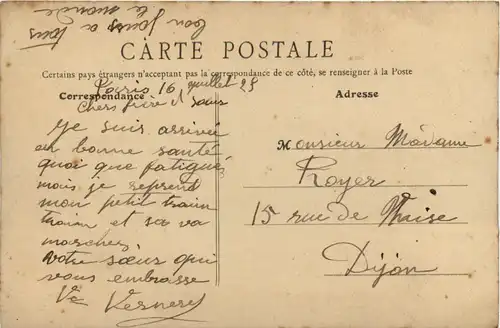 bon jours a tous
le monde
CARTE POSTALE
Certains pays étrangers n'acceptant pas la correspondance de ce côté, se renseigner à la Poste
Correspondance
Paris 16 juillet 25
Chers frère et sœur
Je suis arrivée
en bonne santé
quoi que fatiguée
mais je reprend
mon petit train
train et sa va
marcher
Votre sœur qui
vous embrasse
Ve
Adresse
Monsieur Madame
Royer
15 rue de
Dijon